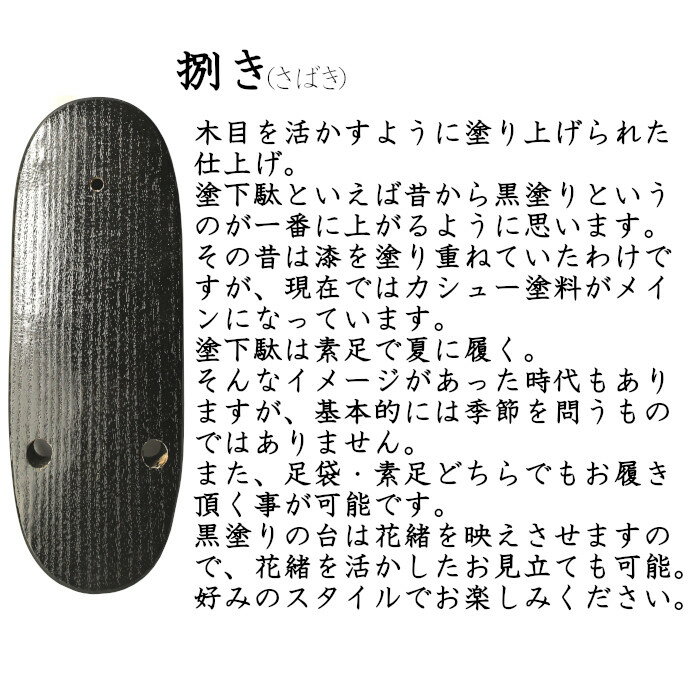 捌き(さばき)
木目を活かすように塗り上げられた
仕上げ。
塗下駄といえば昔から黒塗りという
のが一番に上がるように思います。
その昔は漆を塗り重ねていたわけで
すが、現在ではカシュー塗料がメイ
ンになっています。
塗下駄は素足で夏に履く。
そんなイメージがあった時代もあり
ますが、基本的には季節を問うもの
ではありません。
また、足袋・素足どちらでもお履き
頂く事が可能です。
黒塗りの台は花緒を映えさせますの
で、花緒を活かしたお見立ても可能。
好みのスタイルでお楽しみください。